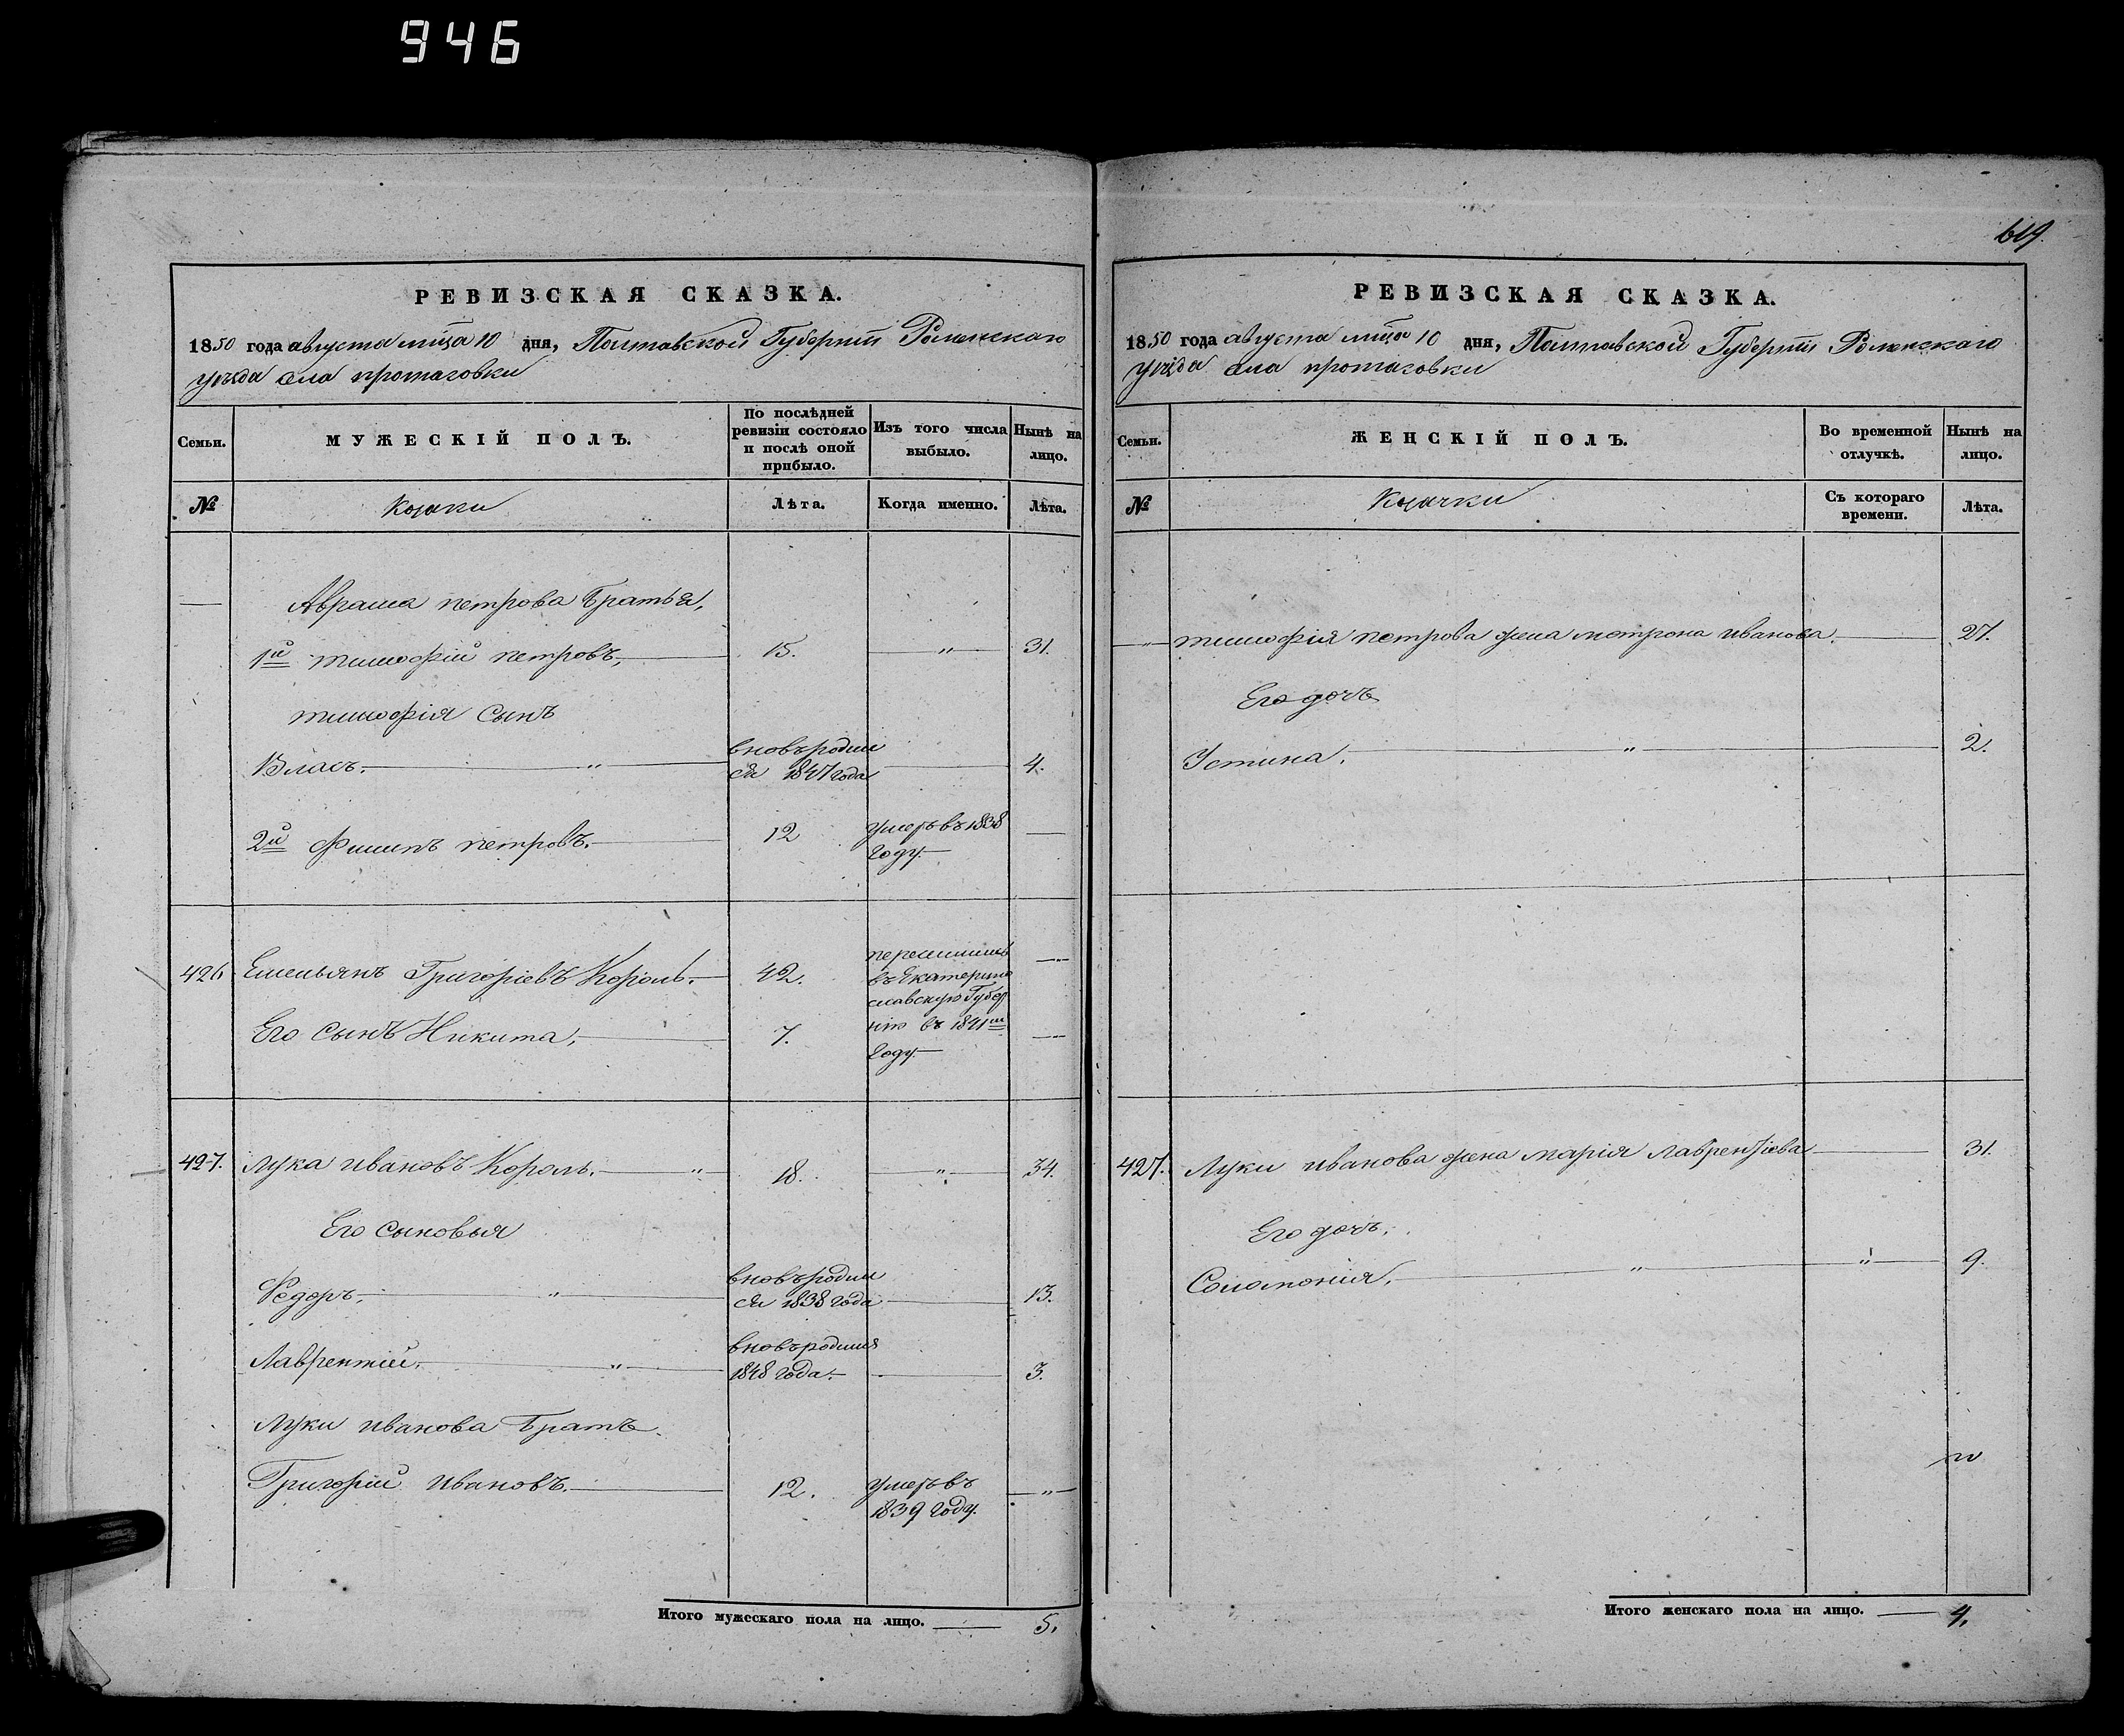 946
619.
РЕВИЗСКАЯ СКАЗКА.
1850 года августа мца 10 дня, Полтавской Губерніи Роменскаго
уѣзда села протасовки
Семьи. МУЖЕСКІЙ ПОЛЪ. По послѣдней ревизіи состояло и послѣ оной прибыло. Изъ того числа выбыло. Нынѣ на лицо.
№ Козаки Лѣта. Когда именно. Лѣта.
Аврама петрова Братья,
1й тимофій петровъ, 15. 31.
тимофія Сынъ
Власъ. вновь родил
ся 1847 года 4.
2й Филипъ петровъ. 12 умеръ въ 1838
году.
426 Емельянъ Григоріевъ Король. 42. переселились
въ Екатерино
славскую Губер
Его Сынъ Никита, 7. нію въ 1841м
году.
427. лука ивановъ Король. 18. 34.
Его Сыновья
Федоръ, вновь родил
ся 1838 года 13.
Лаврентій, вновь родился
1848 года. 3.
Луки иванова Братъ
Григорій ивановъ. 12. умеръ въ
1839 году.
Итого мужескаго пола на лицо. 5.
РЕВИЗСКАЯ СКАЗКА.
1850 года августа мца 10 дня, Полтавской Губерніи Роменскаго
уѣзда села протасовки
Семьи. ЖЕНСКІЙ ПОЛЪ. Во временной отлучкѣ. Нынѣ на лицо.
№ Козачки Съ котораго времени. Лѣта.
тимофія петрова жена мотрона иванова. 27.
Его дочь
Устина, 2.
427. Луки иванова жена марія лаврентіева 31.
Его дочь,
Соломонія, 9.
Итого женскаго пола на лицо. 4.